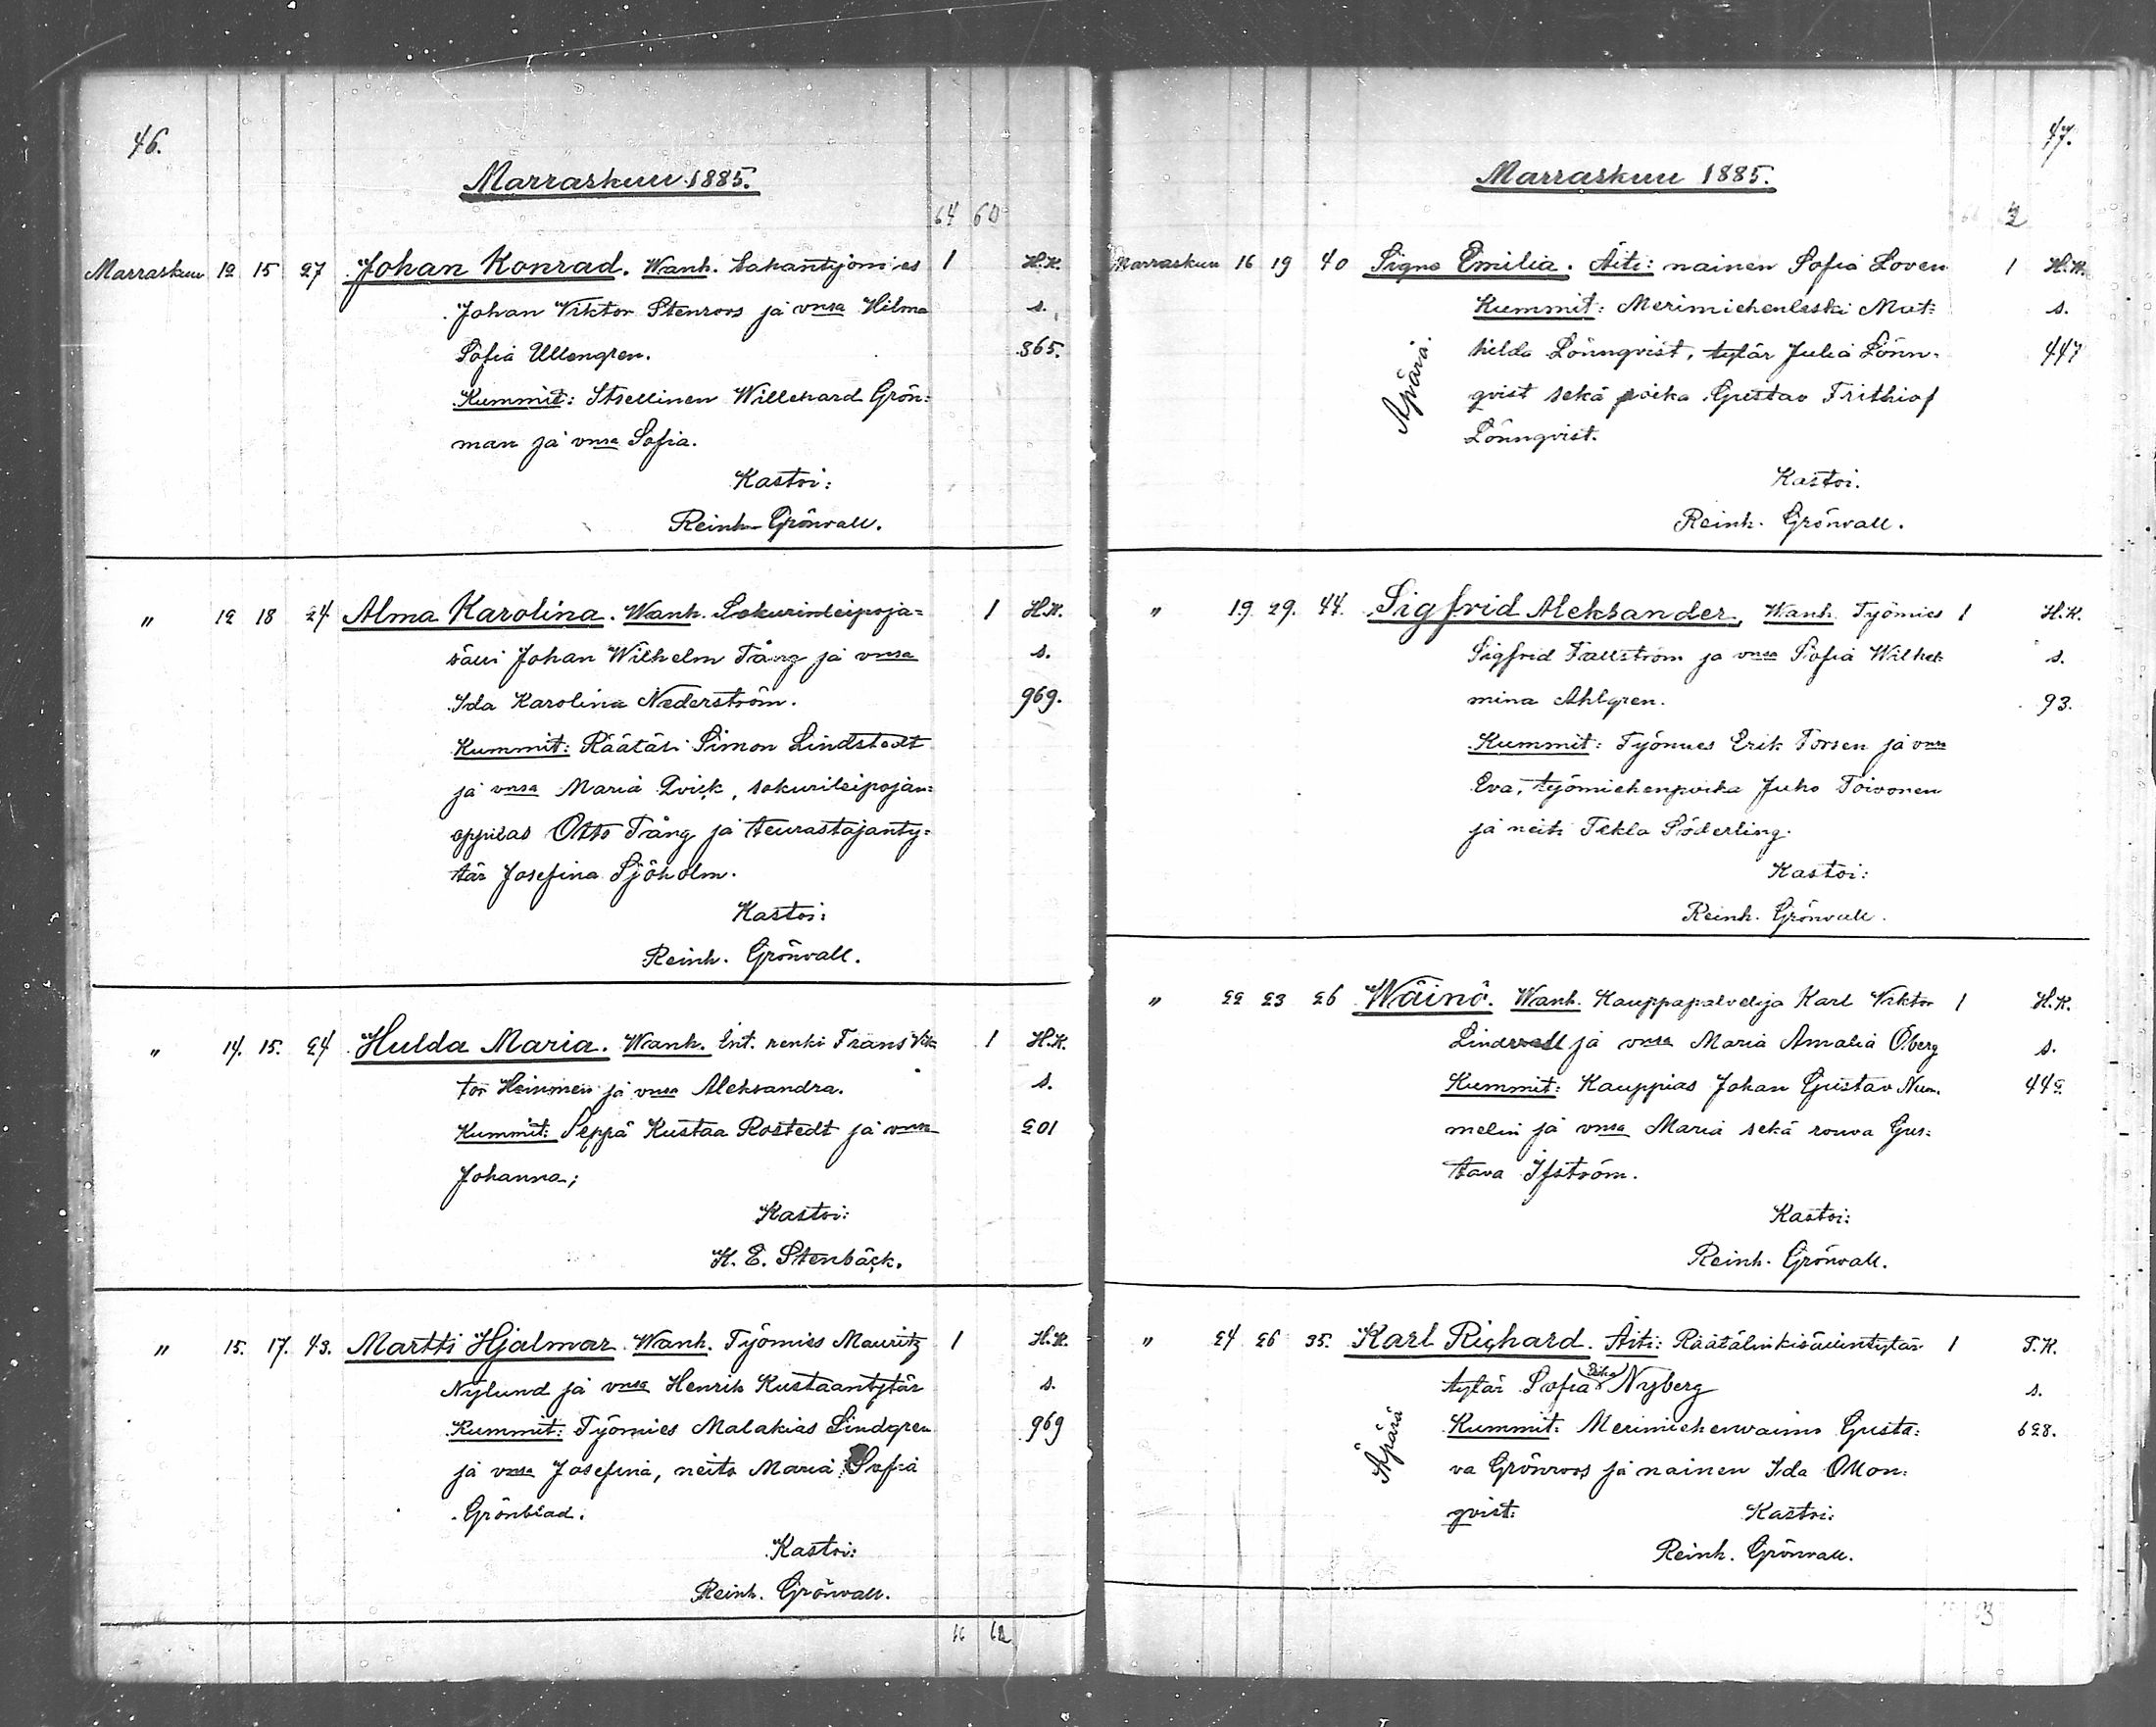 46.
Marraskuu 1885.
64 60
Marraskuu 12 15 27 Johan Konrad. Wanh. Sahantyömies 1 H.K.
Johan Viktor Stenroos ja vmsa Hilma s.
Sofia Ullengren. 365.
Kummit: Itsellinen Willehard Grön=
man ja vmsa Sofia.
Kastoi:
Reinh. Grönvall.
" 12 18 24 Alma Karolina. Wanh. Sokurinleipoja= 1 H.K.
sälli Johan Wilhelm Tång ja vmsa s.
Ida Karolina Nederström. 969.
Kummit: Räätäli Simon Lindstedt
ja vmsa Maria Qvick, sokurileipojan=
oppilas Otto Tång ja teurastajanty=
tär Josefina Sjöholm.
Kastoi:
Reinh. Grönvall.
" 14. 15. 24 Hulda Maria. Wanh. Ent. renki Frans Vik 1 H.K.
tor Heinonen ja vmsa Aleksandra. s.
Kummit: Seppä Kustaa Rostedt ja vmsa 201
Johanna;
Kastoi:
K. E. Stenbäck.
" 15. 17. 43. Martti Hjalmar. Wanh. Työmies Mauritz 1 H.K.
Nylund ja vmsa Henrik Kustaantytär s.
Kummit: Työmies Malakias Lindgren 969
ja vmsa Josefina, neito Maria Sofia
Grönblad.
Kastoi:
Reinh. Grönvall.
66 62
47.
Marraskuu 1885.
Marraskuu 16 19 40 Signe Emilia. Äiti: nainen Sofia Loven 1 H.K.
Kummit: Merimiehenleski Mat= s.
Äpärä.
hilda Lönnqvist, tytär Julia Lönn= 447
qvist sekä poika Gustav Frithiof
Lönnqvist.
Kastoi.
Reinh. Grönvall.
" 19. 29. 44. Sigfrid Aleksander. Wanh. Työmies 1 H.K.
Sigfrid Fallström ja vmsa Sofia Wilhel s.
mina Ahlgren. 93.
Kummit: Työmies Erik Torsen ja vmsa
Eva, työmiehenpoika Juho Toivonen
ja neiti Tekla Söderling.
Kastoi:
Reinh. Grönvall.
" 22 23 26 Wäinö. Wanh. Kauppapalvelija Karl Viktor 1 H.K.
Lindevall ja vmsa Maria Amalia Öberg s.
Kummit: Kauppias Johan Gustav Num= 442
melin ja vmsa Maria sekä rouva Gus=
tava Ifström.
Kastoi:
Reinh. Grönvall.
" 24 26 35. Karl Richard. Äiti: Räätälinkisällintytär 1 T.K.
tytär Sofia Nyberg s.
Äpärä
Kummit: Merimiehenvaimo Gusta= 628.
va Grönroos ja nainen Ida Ollon=
qvist. Kastoi:
Reinh. Grönvall.